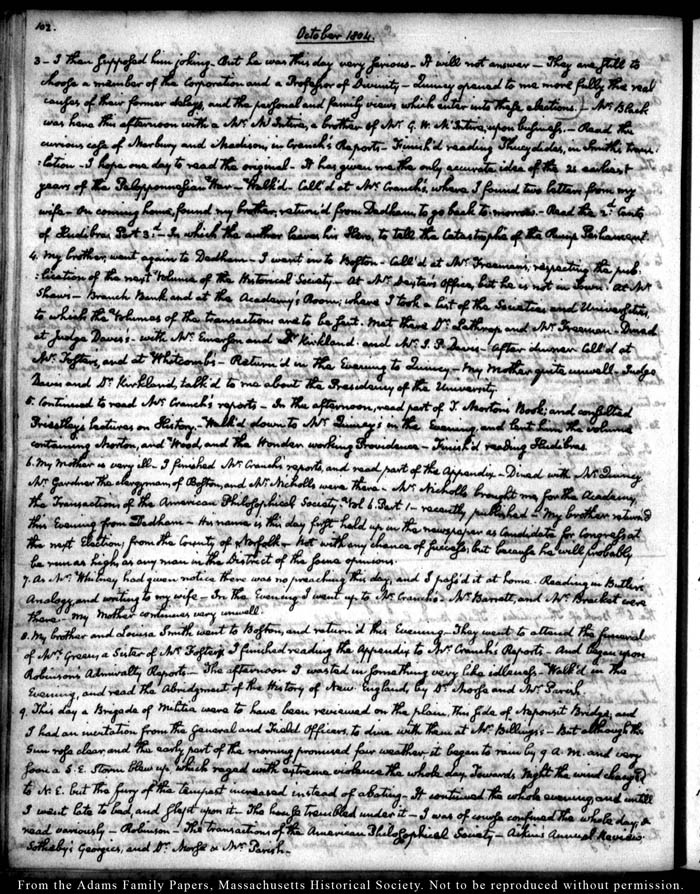 102.
October 1804.
3 - I then supposed him joking. But he was this day very serious - It will not answer - They are still to
choose a member of the Corporation and a Professor of Divinity - Quincy opened to me more fully the real
causes of their former delays, and the personal and family views which enter into these elections. - Mr. Black
was here this afternoon with a Mr. McIntire, a brother of Mr. G. W. McIntire, upon business. - Read the
curious case of Marbury and Madison, in Cranch's Reports - Finish'd reading Thucydides, in Smith's trans-
:lation - I hope one day to read the original - It has given me the only accurate idea of the 21 earliest
years of the Peloponnesian War - Walk'd - Call'd at Mr. Cranch's, where I found two letters from my
wife - On coming home, found my brother, return'd from Dedham, to go back to-morrow. - Read the 2.d Canto
of Hudibras Part 3.d - In which the author leaves his Hero, to tell the Catastrophe of the Rump Parliament.
4. My brother, went again to Dedham - I went in to Boston - Call'd at Mr. Freeman's, respecting the pub-
:lication of the next Volume of the Historical Society - At Mr. Dexter's Office, but he is not in Town. At Mr.
Shaw's - Branch Bank, and at the Academy's Room; where I took a list of the Societies and Universities,
to which the Volumes of the transactions are to be sent. Met there Dr. Lathrop and Mr. Freeman - Dined
at Judge Davis's. with Mr. Emerson and Dr. Kirkland: and Mr. I. P. Davis - After dinner call'd at
Mr. Foster's, and at Whitcomb's - Return'd in the Evening to Quincy - My Mother quite unwell - Judge
Davis and Dr. Kirkland, talk'd to me about the Presidency of the University.
5. Continued to read Mr. Cranch's reports - In the afternoon, read part of T. Morton's Book; and consulted
Priestley's Lectures on History. - Walk'd down to Mr. Quincy's in the Evening, and lent him the volume
containing Morton, and Wood, and the Wonder working Providence - Finish'd reading Hudibras.
6. My Mother is very ill - I finished Mr. Cranch's reports, and read part of the Appendix - Dined with Mr. Quincy
Mr. Gardner the clergyman, of Boston, and Mr. Nicholls were there. Mr. Nicholls brought me for the Academy
the Transactions of the American Philosophical Society. Vol 6. Part 1 - recently published - My brother returned
this Evening from Dedham - His name is this day first held up in the newspaper as Candidate for Congress at
the next Election, from the County of Norfolk - Not with any chance of success; but because he will probably
be run as high, as any man in the District of the same opinions.
7. As Mr. Whitney had given notice there was no preaching this day, and I pass'd it at home. Reading in Butler's
Analogy, and writing to my wife - In the Evening I went up to Mr. Cranch's - Mr. Barrett, and Mr. Bracket were
there - My Mother continues very unwell.
8. My brother and Louisa Smith went to Boston, and return'd this Evening. They went to attend the funeral
of Mrs. Green, a Sister of Mr. Foster's. I finished reading the Appendix to Mr. Cranch's Reports - And began upon
Robinson's Admiralty Reports - The afternoon I wasted in something very like idleness - Walk'd in the
Evening, and read the Abridgment of the History of New England, by Dr. Morse and Mr. Parish.
9. This day a Brigade of Militia were to have been reviewed on the plain, this side of Neponsit Bridge, and
I had an invitation from the General and Field Officers, to dine with them at Mr. Billings's - But although the
Sun rose clear, and the early part of the morning promised fair weather it began to rain by 9 A.M. and very
soon a S.E. Storm blew up which raged with extreme violence the whole day. Towards Night the wind changed
to N.E. but the fury of the tempest increased instead of abating - It continued the whole evening, and untill
I went late to bed, and slept upon it - The house trembled under it - I was of course confined the whole day, &
read variously - Robinson - The transactions of the American Philosophical Society - Aikin's Annual Review
Sotheby's Georgics, and Dr. Morse & Mr. Parish.
From the Adams Family Papers, Massachusetts Historical Society. Not to be reproduced without permission.